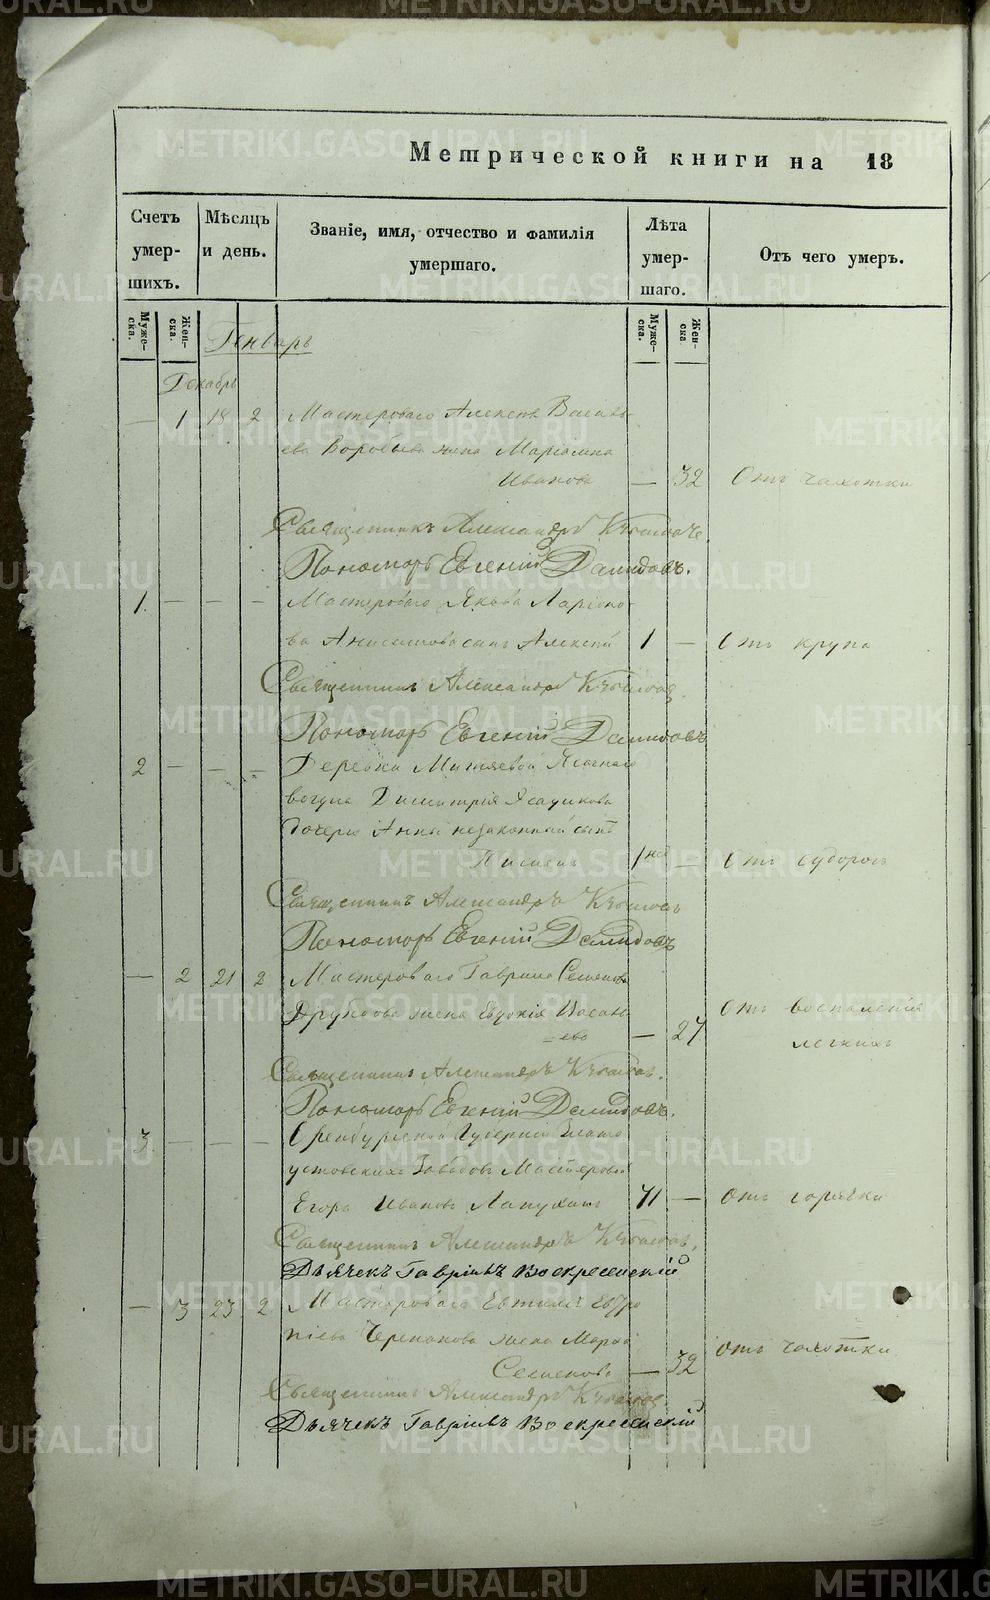 METRIKI.GASO-URAL.RU
Метрической книги на 18
Счетъ умершихъ.
Мѣсяцъ и день.
Званіе, имя, отчество и фамилія умершаго.
Лѣта умершаго.
Отъ чего умеръ.
Мужеска.
Женска.
Мужеска.
Женска
Генварь
Декабрь
— 1 18 2 Мастероваго Алексѣя Василь-
ева Воробьева жена Маріамна
Иванова — 32 Отъ чахотки
Священникъ Александръ
Пономарь Евгеній Демидовъ.
1. — — — Мастероваго Якова Ларіоно-
ва Анисимова сынъ Алексѣй 1 — Отъ крупа
Священникъ Александръ
Пономарь Евгеній Демидовъ
2 — — — Деревни Митяевой Ясачнаго
вогула Димитрія Ясашкова
дочери Анны незаконный сынъ
1 нед — Отъ судорогъ
Священникъ Александръ
Пономарь Евгеній Демидовъ
— 2 21 2 Мастероваго Гаврила Семенова
жена Евдокія Иванъ-
=ева — 27 Отъ воспаленія
легкихъ
Священникъ Александръ
Пономарь Евгеній Демидовъ.
3 — — — Оренбургской Губерніи Злато
устовскихъ Заводовъ Мастеровой
Егоръ Ивановъ Лапухинъ 71 — Отъ горячки
Священникъ Александръ
Дьячекъ Гавріилъ Воскресенскій
— 3 23 2 Мастероваго Евтихія Евтро
піева Черепанова жена Марѳа
Семенова — 32 Отъ чахотки
Священникъ Александръ
Дьячекъ Гавріилъ Воскресенскій